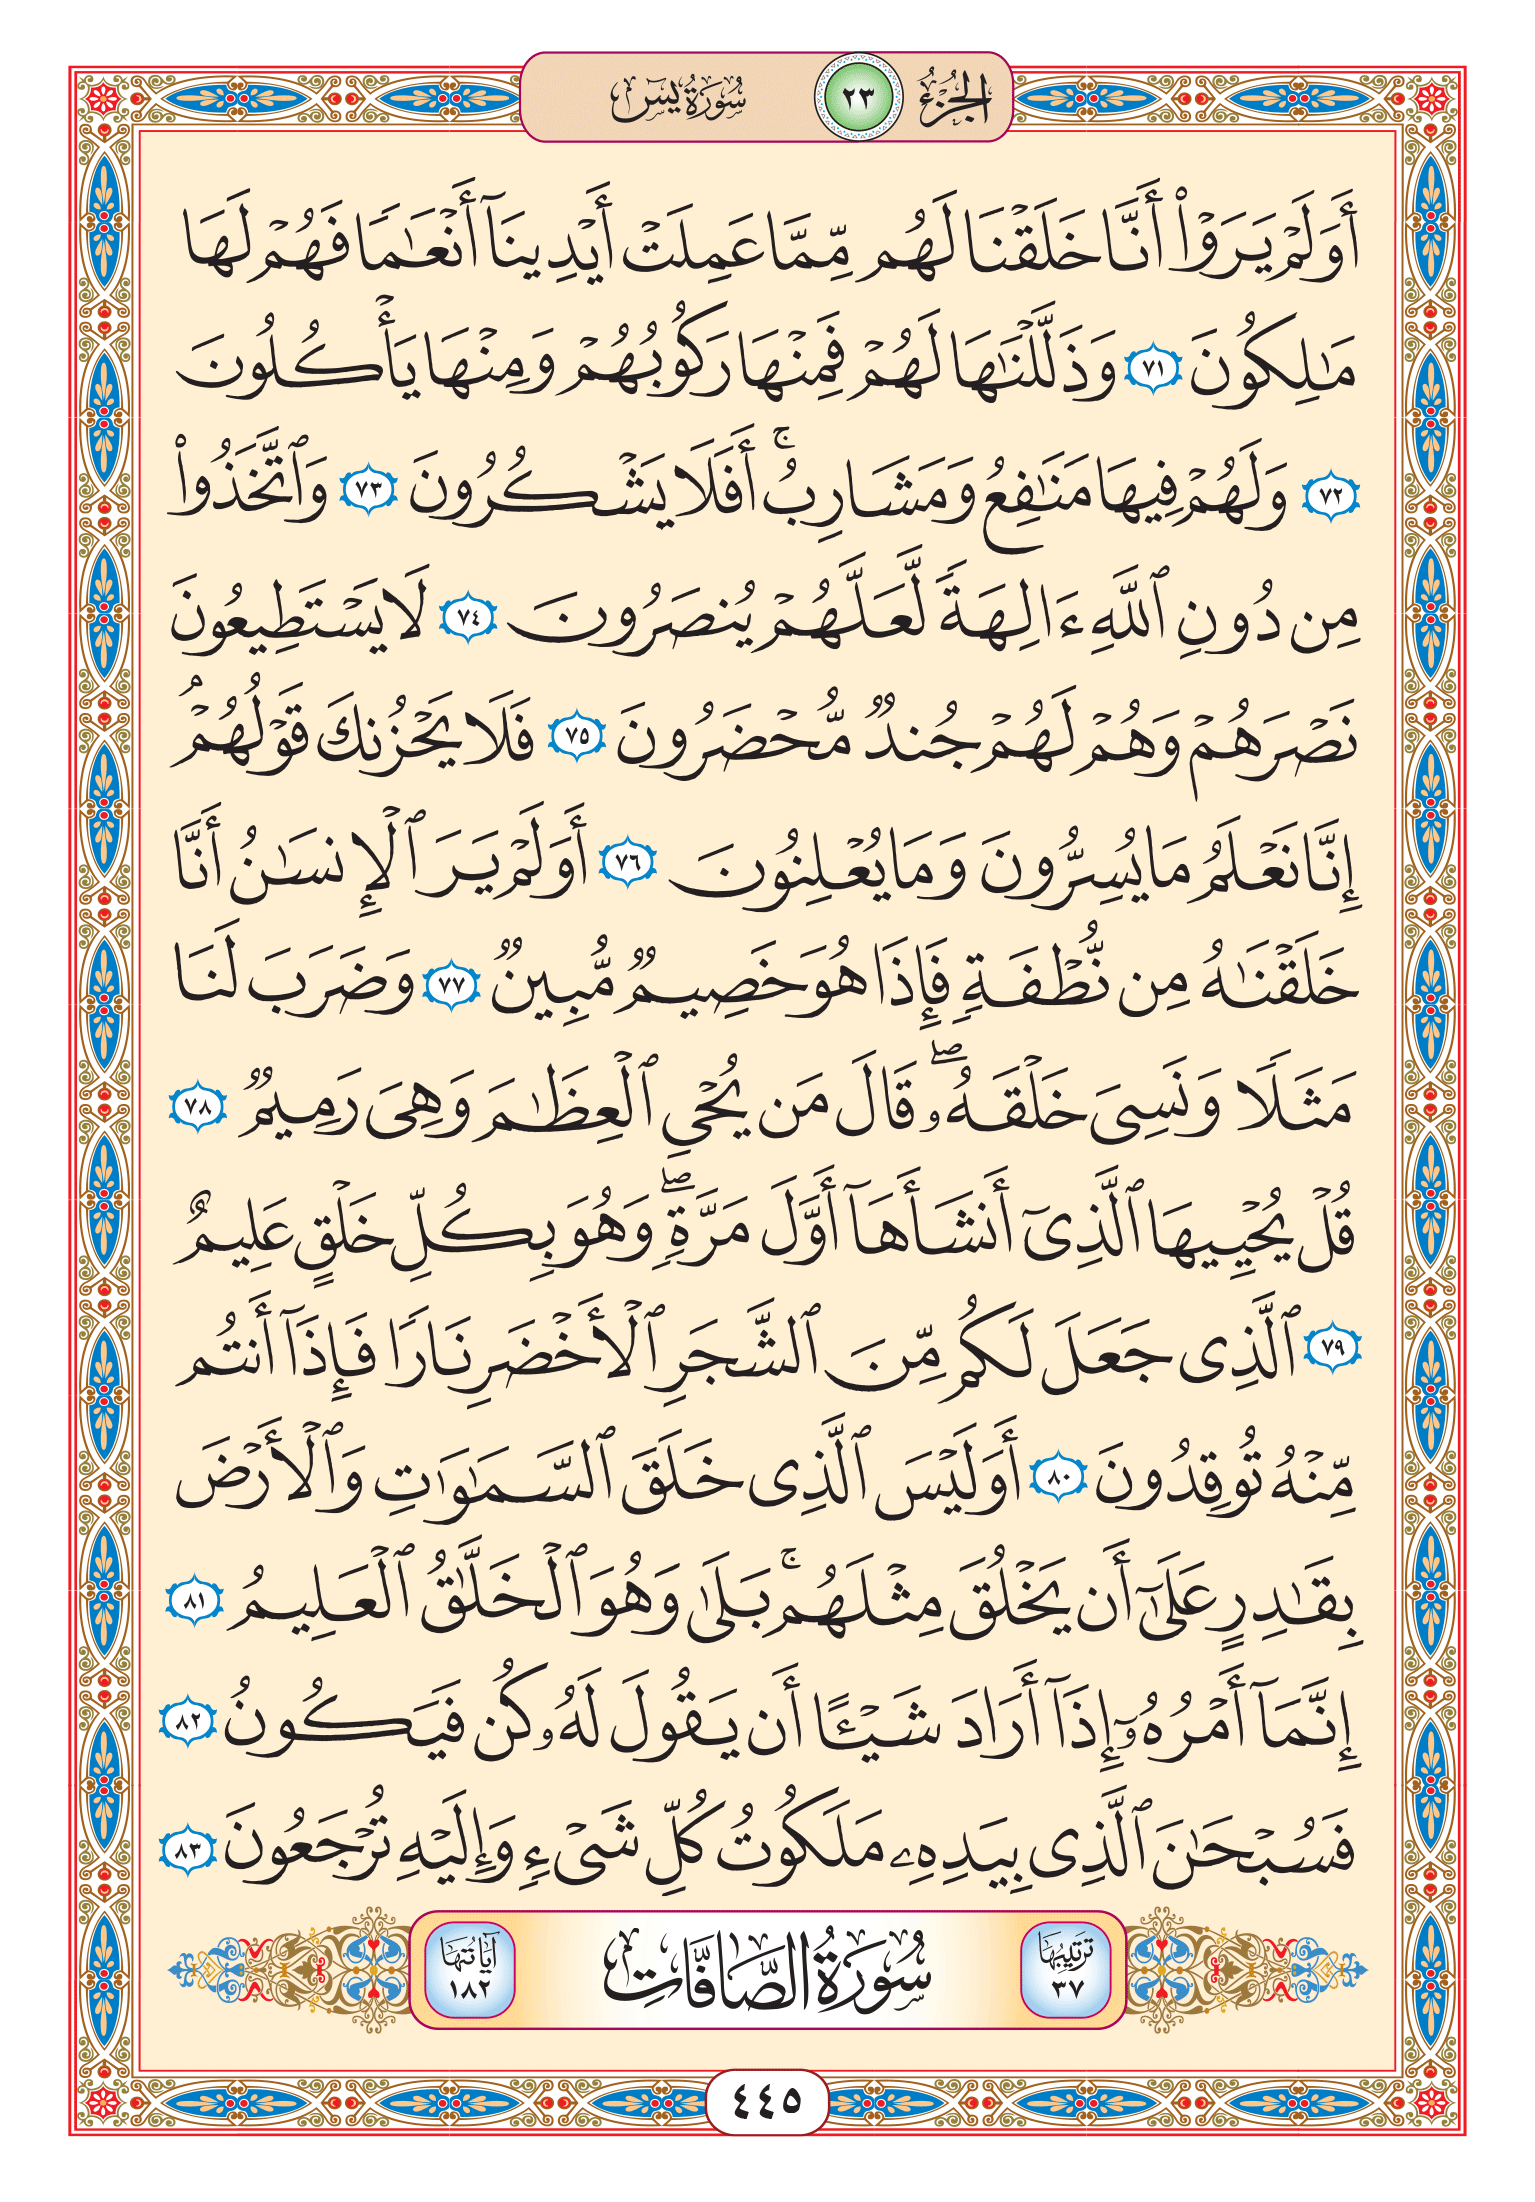 الجُزْءُ ٢٣ سُورَةُ يسٓ
أَوَلَمْ يَرَوْا۟ أَنَّا خَلَقْنَا لَهُم مِّمَّا عَمِلَتْ أَيْدِينَآ أَنْعَـٰمًا فَهُمْ لَهَا
مَـٰلِكُونَ ٧١ وَذَلَّلْنَـٰهَا لَهُمْ فَمِنْهَا رَكُوبُهُمْ وَمِنْهَا يَأْكُلُونَ
٧٢ وَلَهُمْ فِيهَا مَنَـٰفِعُ وَمَشَارِبُ ۚ أَفَلَا يَشْكُرُونَ ٧٣ وَٱتَّخَذُوا۟
مِن دُونِ ٱللَّهِ ءَالِهَةً لَّعَلَّهُمْ يُنصَرُونَ ٧٤ لَا يَسْتَطِيعُونَ
نَصْرَهُمْ وَهُمْ لَهُمْ جُندٌ مُّحْضَرُونَ ٧٥ فَلَا يَحْزُنكَ قَوْلُهُمْ ۘ
إِنَّا نَعْلَمُ مَا يُسِرُّونَ وَمَا يُعْلِنُونَ ٧٦ أَوَلَمْ يَرَ ٱلْإِنسَـٰنُ أَنَّا
خَلَقْنَـٰهُ مِن نُّطْفَةٍ فَإِذَا هُوَ خَصِيمٌ مُّبِينٌ ٧٧ وَضَرَبَ لَنَا
مَثَلًا وَنَسِىَ خَلْقَهُۥ ۖ قَالَ مَن يُحْىِ ٱلْعِظَـٰمَ وَهِىَ رَمِيمٌ ٧٨
قُلْ يُحْيِيهَا ٱلَّذِىٓ أَنشَأَهَآ أَوَّلَ مَرَّةٍ ۖ وَهُوَ بِكُلِّ خَلْقٍ عَلِيمٌ
٧٩ ٱلَّذِى جَعَلَ لَكُم مِّنَ ٱلشَّجَرِ ٱلْأَخْضَرِ نَارًا فَإِذَآ أَنتُم
مِّنْهُ تُوقِدُونَ ٨٠ أَوَلَيْسَ ٱلَّذِى خَلَقَ ٱلسَّمَـٰوَٰتِ وَٱلْأَرْضَ
بِقَـٰدِرٍ عَلَىٰٓ أَن يَخْلُقَ مِثْلَهُم ۚ بَلَىٰ وَهُوَ ٱلْخَلَّـٰقُ ٱلْعَلِيمُ ٨١
إِنَّمَآ أَمْرُهُۥٓ إِذَآ أَرَادَ شَيْـًٔا أَن يَقُولَ لَهُۥ كُن فَيَكُونُ ٨٢
فَسُبْحَـٰنَ ٱلَّذِى بِيَدِهِۦ مَلَكُوتُ كُلِّ شَىْءٍ وَإِلَيْهِ تُرْجَعُونَ ٨٣
تَرْتِيبُهَا ٣٧ سُورَةُ الصَّافَّاتِ آيَاتُهَا ١٨٢
٤٤٥